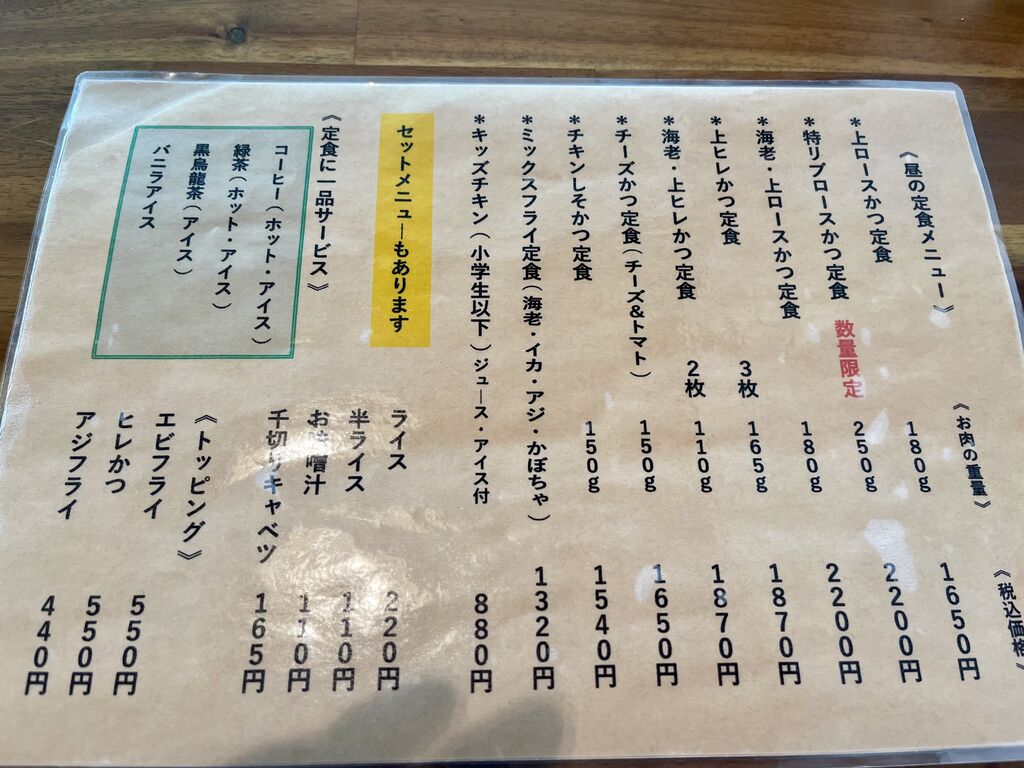 《昼の定食メニュー》 《お肉の重量》 《税込価格》
*上ロースかつ定食 180g 1650円
*特リブロースかつ定食 数量限定 250g 2200円
*海老・上ロースかつ定食 180g 2200円
*上ヒレかつ定食 3枚 165g 1870円
*海老・上ヒレかつ定食 2枚 110g 1870円
*チーズかつ定食(チーズ&トマト) 150g 1650円
*チキンしそかつ定食 150g 1540円
*ミックスフライ定食(海老・イカ・アジ・かぼちゃ) 1320円
*キッズチキン(小学生以下)ジュース・アイス付 880円
セットメニューもあります
《定食に一品サービス》
コーヒー(ホット・アイス)
緑茶(ホット・アイス)
黒烏龍茶(アイス)
バニラアイス
ライス 220円
半ライス 110円
お味噌汁 110円
千切りキャベツ 165円
《トッピング》
エビフライ 550円
ヒレかつ 550円
アジフライ 440円